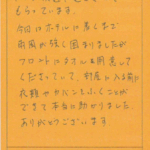 もらっています。
今回はホテルに着くまで
雨風が強く困りましたが
フロントにタオルを用意して
くださっていて、部屋に入る前に
衣類やカバンをふくことが
できて本当に助かりました。
ありがとうございます